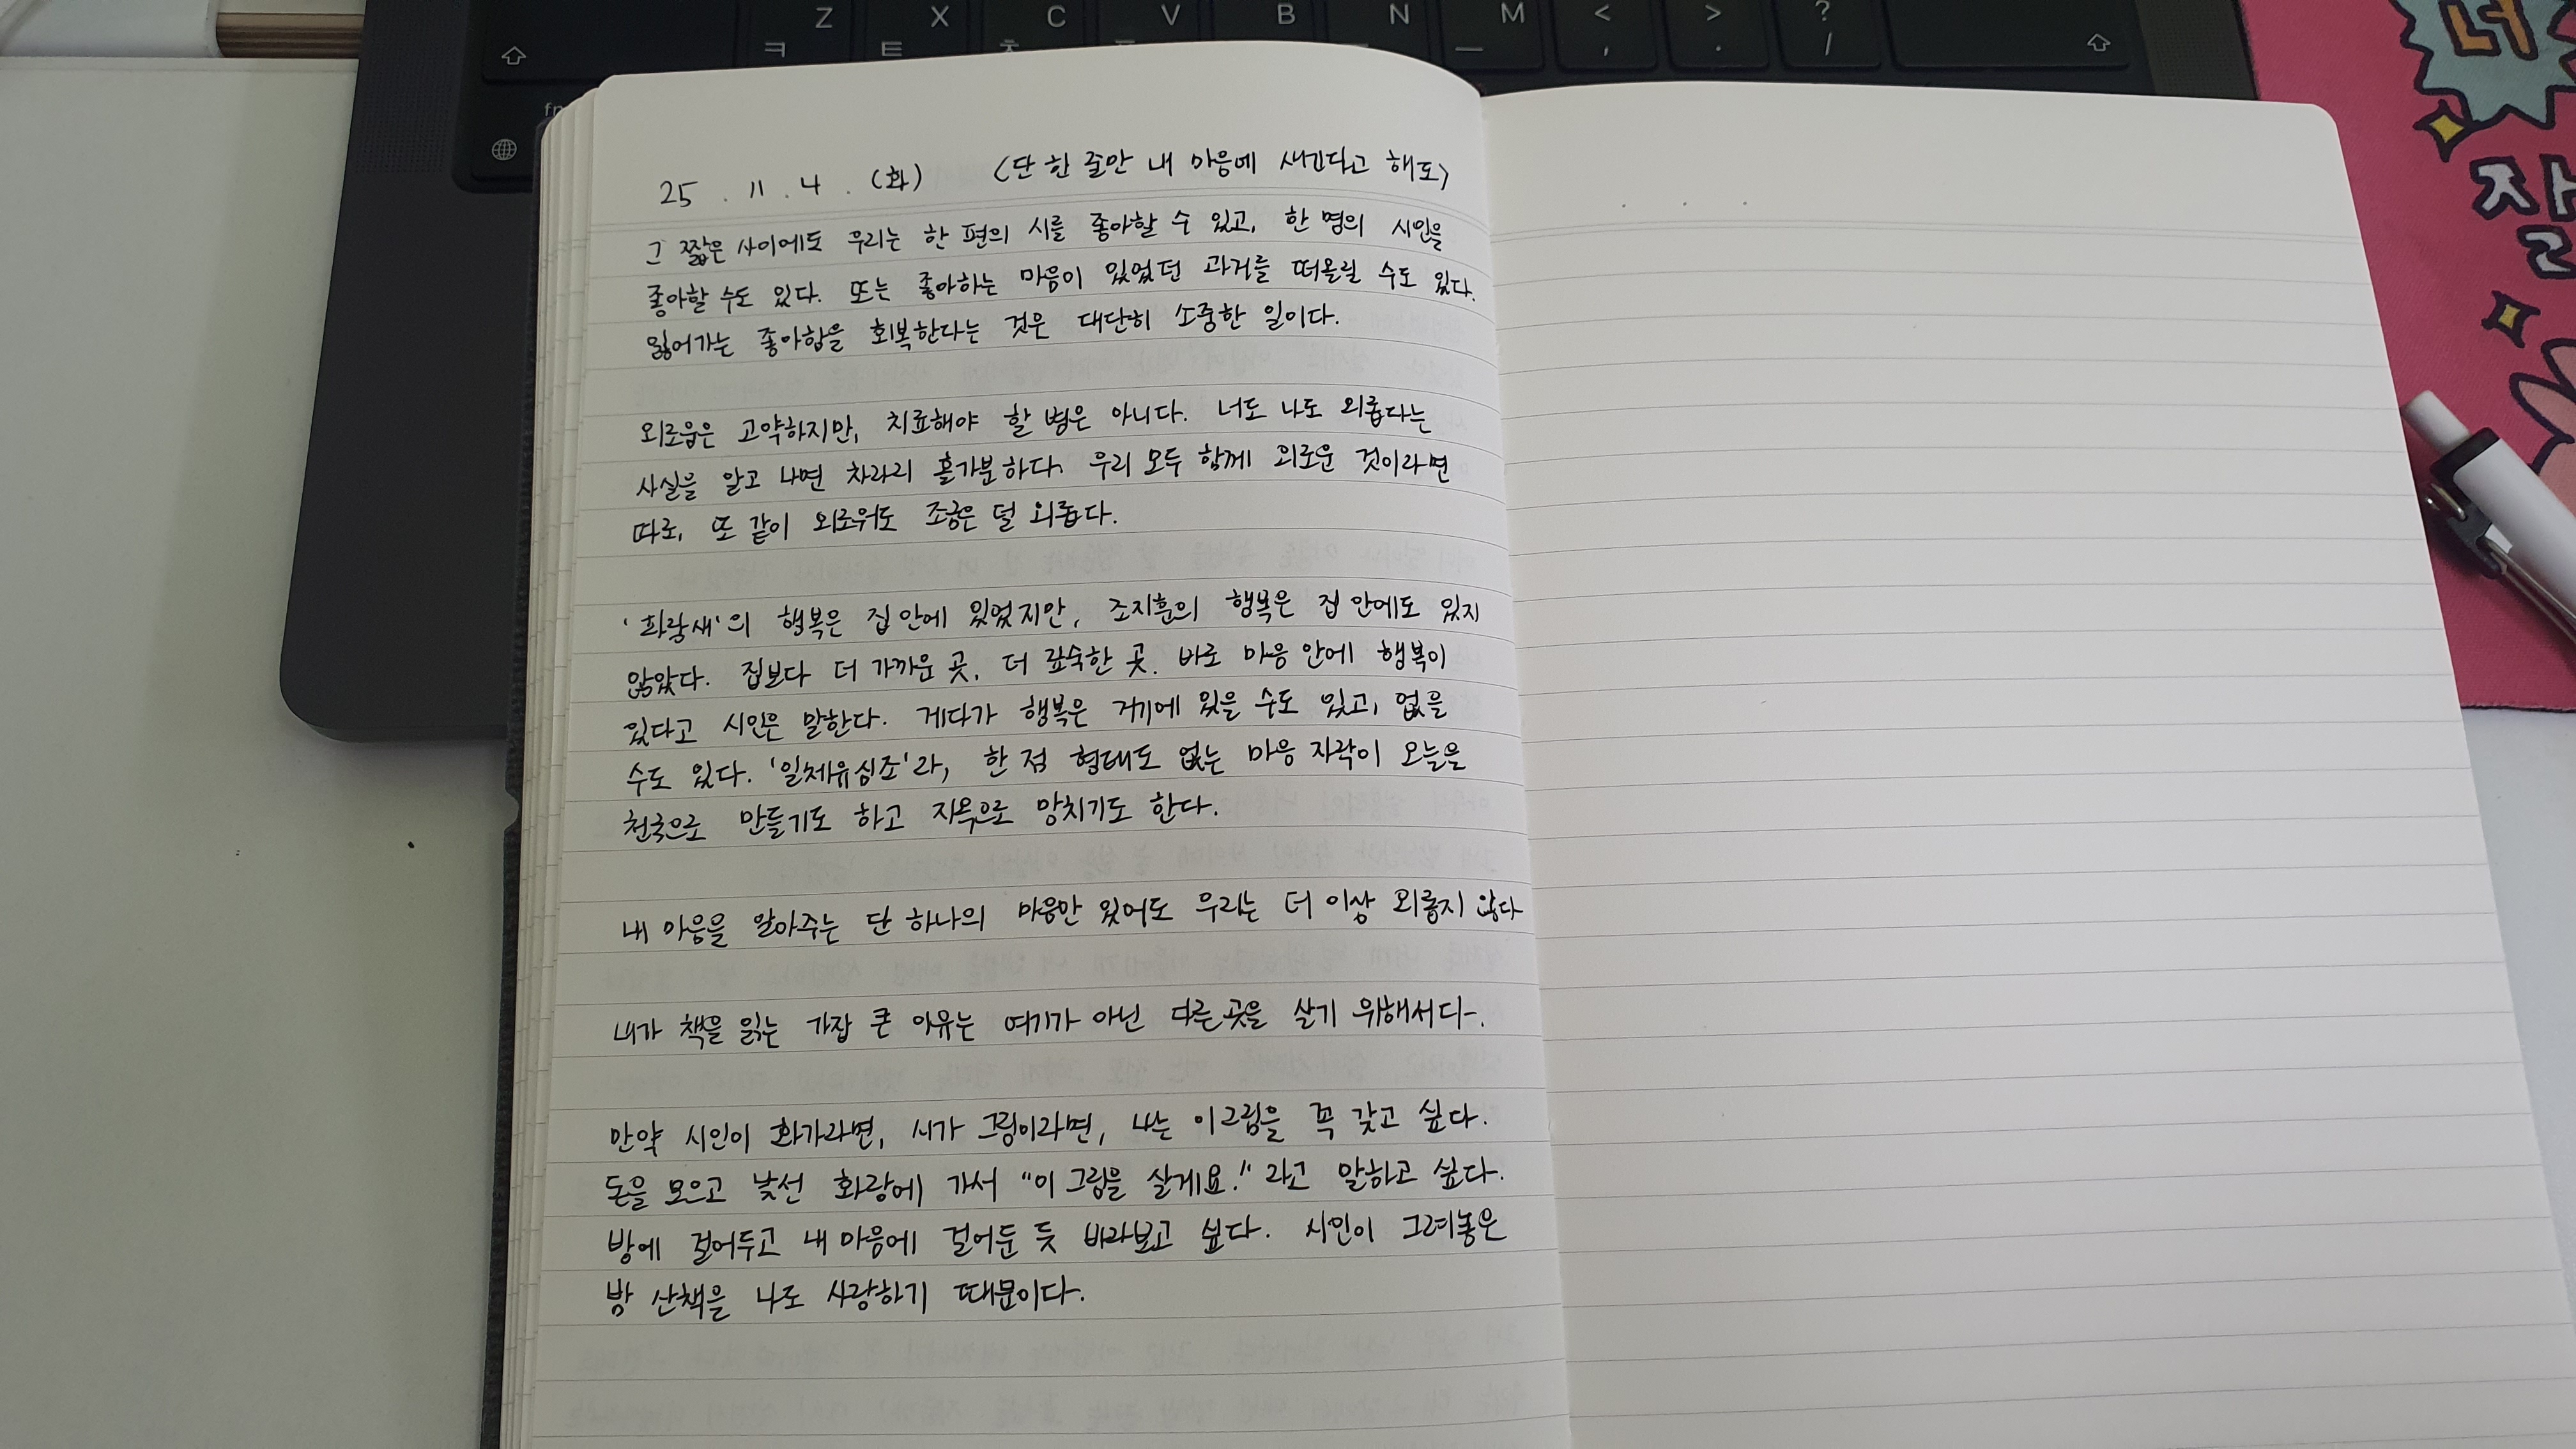 Z X C V B N M < > ?
ㅋ ㅌ ㅊ ㅡ , . /
fn
너
잘
25 . 11 . 4 . (화) <단 한 줄만 내 마음에 새긴다고 해도>
그 짧은 사이에도 우리는 한 편의 시를 좋아할 수 있고, 한 명의 시인을
좋아할 수도 있다. 또는 좋아하는 마음이 있었던 과거를 떠올릴 수도 있다.
잃어가는 좋아함을 회복한다는 것은 대단히 소중한 일이다.
외로움은 고약하지만, 치료해야 할 병은 아니다. 너도 나도 외롭다는
사실을 알고 나면 차라리 홀가분하다. 우리 모두 함께 외로운 것이라면
따로, 또 같이 외로워도 조금은 덜 외롭다.
'파랑새'의 행복은 집 안에 있었지만, 조지훈의 행복은 집 안에도 있지
않았다. 집보다 더 가까운 곳, 더 깊숙한 곳. 바로 마음 안에 행복이
있다고 시인은 말한다. 게다가 행복은 거기에 있을 수도 있고, 없을
수도 있다. '일체유심조'라, 한 점 형태도 없는 마음 자락이 오늘을
천국으로 만들기도 하고 지옥으로 망치기도 한다.
내 마음을 알아주는 단 하나의 마음만 있어도 우리는 더 이상 외롭지 않다
내가 책을 읽는 가장 큰 이유는 여기가 아닌 다른 곳을 살기 위해서다.
만약 시인이 화가라면, 시가 그림이라면, 나는 이 그림을 꼭 갖고 싶다.
돈을 모으고 낯선 화랑에 가서 "이 그림을 살게요!" 라고 말하고 싶다.
방에 걸어두고 내 마음에 걸어둔 듯 바라보고 싶다. 시인이 그려놓은
밤 산책을 나도 사랑하기 때문이다.